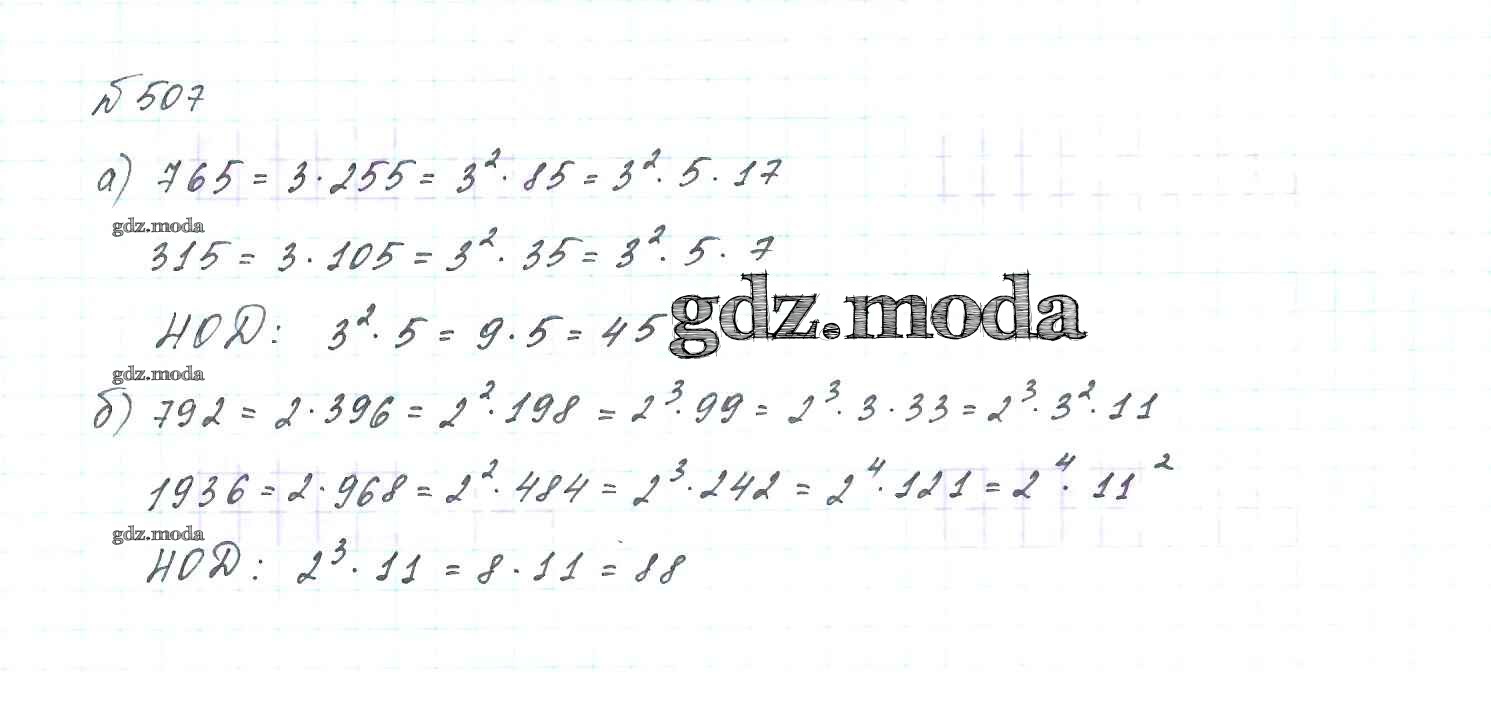 № 507
а) 765 = 3 · 255 = 3² · 85 = 3² · 5 · 17
gdz.moda
315 = 3 · 105 = 3² · 35 = 3² · 5 · 7
НОД: 3² · 5 = 9 · 5 = 45
gdz.moda
gdz.moda
б) 792 = 2 · 396 = 2² · 198 = 2³ · 99 = 2³ · 3 · 33 = 2³ · 3² · 11
1936 = 2 · 968 = 2² · 484 = 2³ · 242 = 2⁴ · 121 = 2⁴ · 11²
gdz.moda
НОД: 2³ · 11 = 8 · 11 = 88